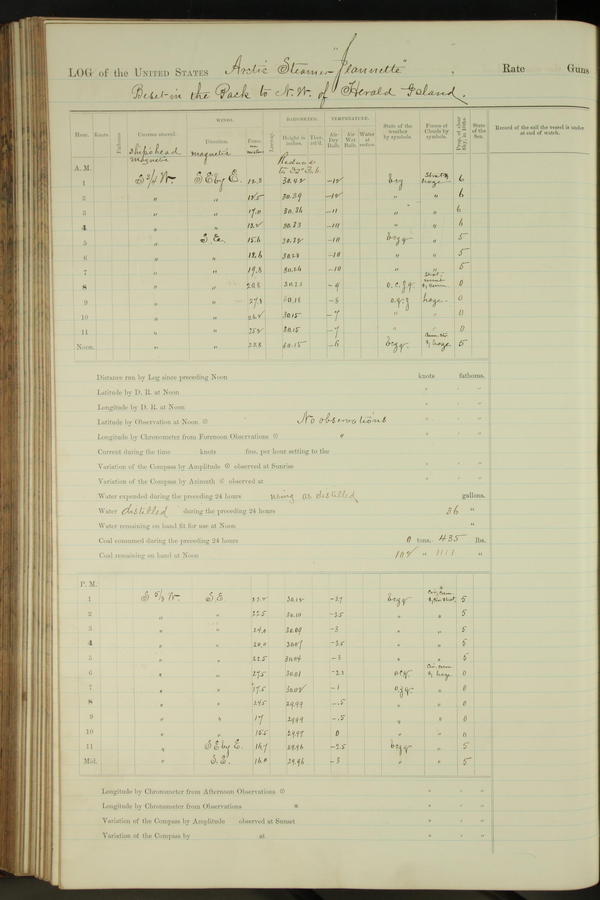 LOG of the UNITED STATES Arctic Steamer "Jeannette", Rate Guns
Beset in the Pack to N.W. of Herald Island.
Hour. Knots. Fathoms. Courses steered. WINDS. Direction. Force. Leeway. BAROMETER. Height in inches. Ther. att'd. TEMPERATURE. Air Dry Bulb. Air Wet Bulb. Water at surface. State of the weather by symbols. Forms of Clouds by symbols. Prop. of clear sky, in 10ths. State of the Sea. Record of the sail the vessel is under at end of watch.
ship's head magnetic magnetic Reduced to 32° Fah.
A. M.
1 S 3/4 W. S E by E. 12.3 30.42 -12 6
2 " " 30.39 -12 " " 6
3 " " 17.0 30.36 -11 " " 6
4 " " 30.33 -10 " " 6
5 " S.E. 15.6 -10 5
6 " " 18.6 30.28 -10 " " 5
7 " " 19.8 30.26 -10 " " 5
8 " " 20.8 -9 o.c.z.q. 0
9 " " 27.3 30.18 -8 o.q.z haze 0
10 " " 30.15 -7 " " 0
11 " " 30.15 -7 " " 0
Noon. " " 30.15 -6 & haze 5
Distance run by Log since preceding Noon knots fathoms.
Latitude by D. R. at Noon ° ′ ″
Longitude by D. R. at Noon ° ′ ″
Latitude by Observation at Noon ☉ No observations ° ′ ″
Longitude by Chronometer from Forenoon Observations ☉ " ° ′ ″
Current during the time knots fms. per hour setting to the
Variation of the Compass by Amplitude ☉ observed at Sunrise ° ′ ″
Variation of the Compass by Azimuth ☉ observed at ° ′ ″
Water expended during the preceding 24 hours using as distilled gallons.
Water distilled during the preceding 24 hours 36 "
Water remaining on hand fit for use at Noon "
Coal consumed during the preceding 24 hours 0 tons, 435 lbs.
Coal remaining on hand at Noon 102 " 1111 "
P. M.
1 S 5/8 W S.E. 30.12 5
2 " " 22.5 30.10 -3.5 " " 5
3 " " 24.0 30.09 -3 " " 5
4 " " 20.0 30.07 -3.5 " " 5
5 " " 22.5 30.04 -3 " " 5
6 " " 27.5 30.01 & haze 0
7 " " 17.5 30.02 -1 " 0
8 " " 24.5 29.99 -.5 " " 0
9 " " 17 29.99 -.5 " " 0
10 " " 15.5 29.97 0 " " 0
11 " S E by E. 16.7 29.96 -2.5 " 5
Mid. " S.E. 16.0 29.96 -3 " " 5
Longitude by Chronometer from Afternoon Observations ☉ ° ′ ″
Longitude by Chronometer from Observations * ° ′ ″
Variation of the Compass by Amplitude observed at Sunset ° ′ ″
Variation of the Compass by at ° ′ ″